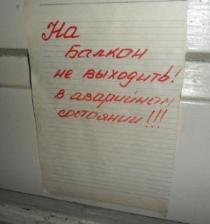 На
Балкон
не выходить!
в аварийном
состоянии!!!